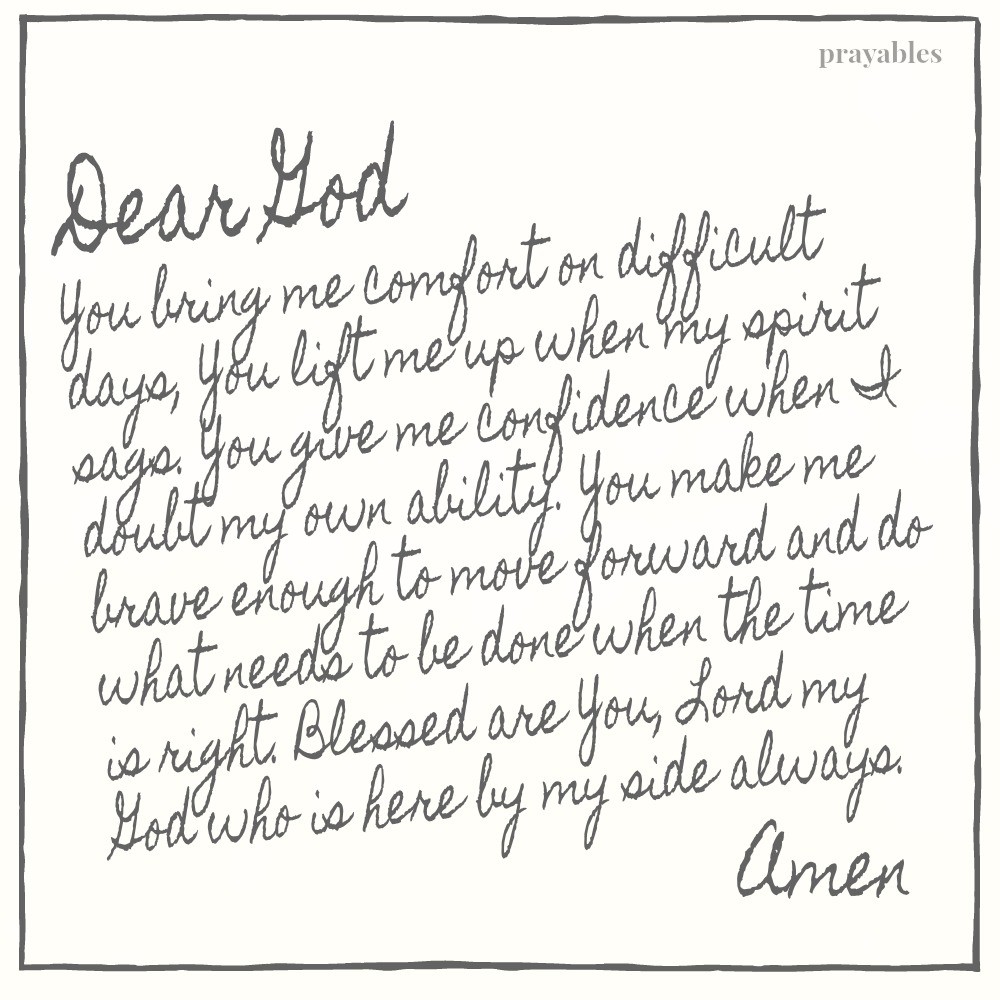 prayables
Dear God
You bring me comfort on difficult
days, You lift me up when my spirit
sags. You give me confidence when I
doubt my own ability. You make me
brave enough to move forward and do
what needs to be done when the time
is right. Blessed are You, Lord my
God who is here by my side always.
Amen